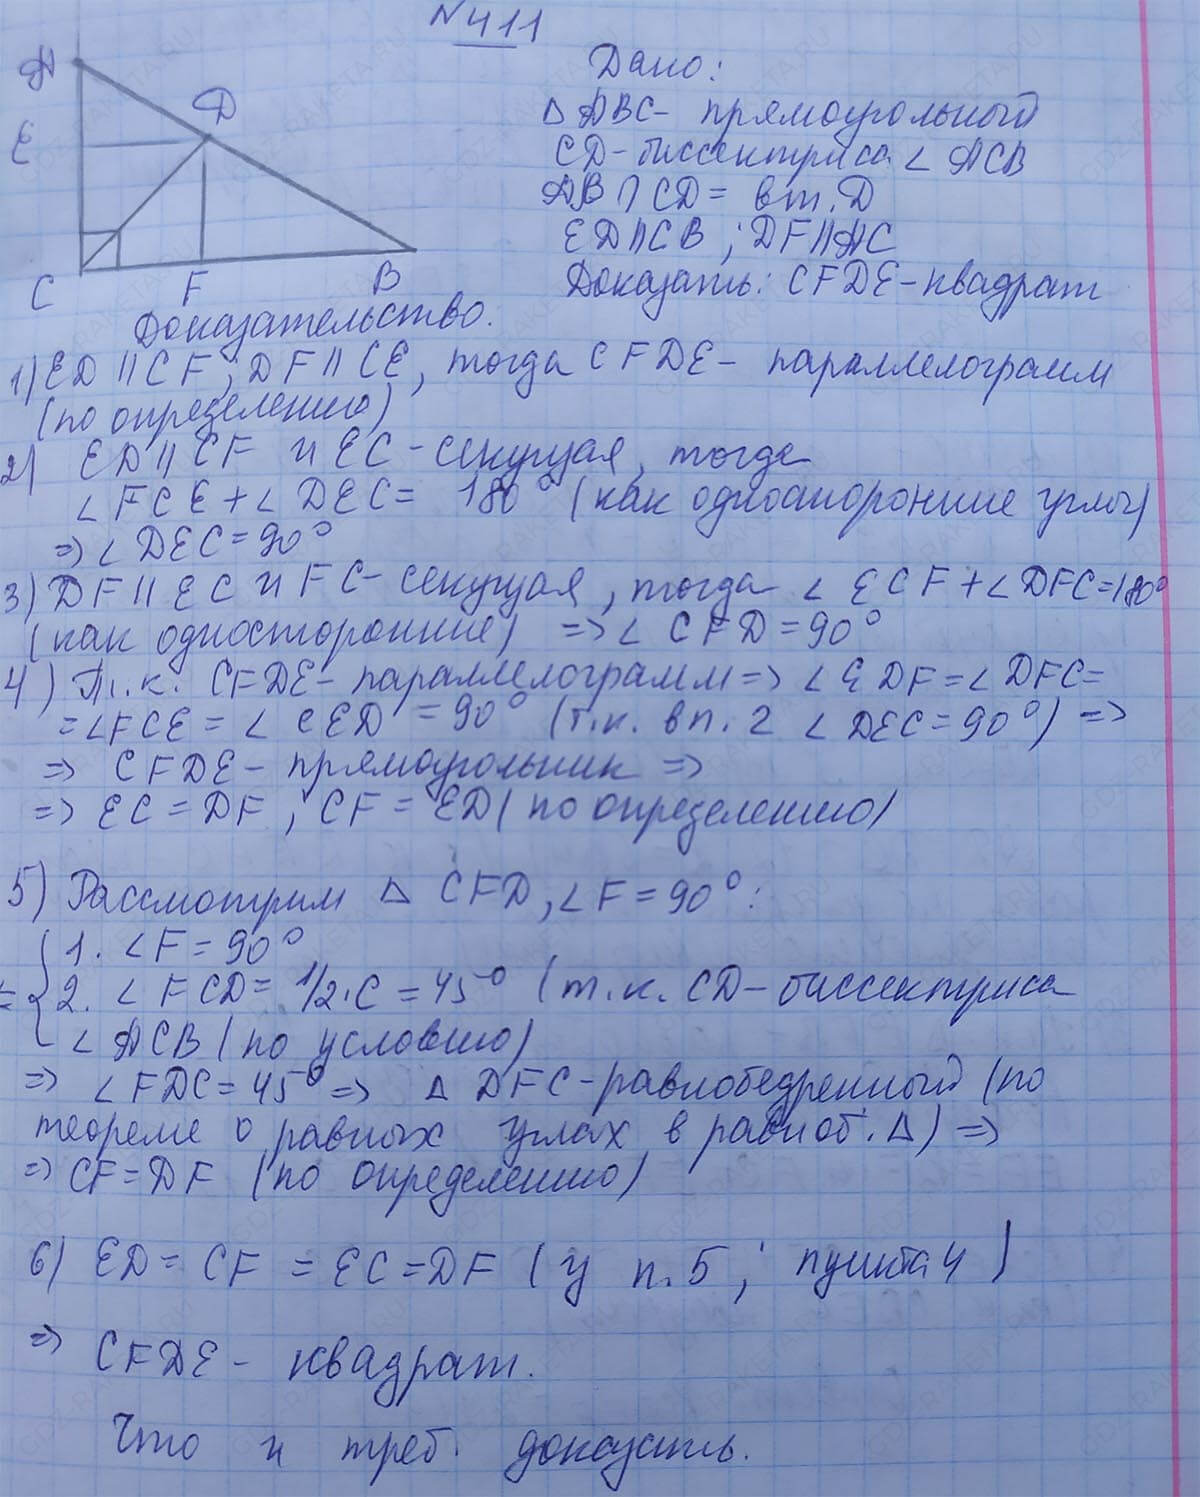 №411
A
E
D
C
F
B
Дано:
△ ABC - прямоугольный
CD - биссектриса ∠ ACB
AB ∩ CD = в т. D
ED || CB ; DF || AC
Доказать: CFDE - квадрат
Доказательство.
1) ED || CF ; DF || CE, тогда CFDE - параллелограмм
(по определению)
2) ED || CF и EC - секущая, тогда
∠ FCE + ∠ DEC = 180° (как односторонние углы)
=> ∠ DEC = 90°
3) DF || EC и FC - секущая, тогда ∠ ECF + ∠ DFC = 180°
(как односторонние) => ∠ CFD = 90°
4) Т.к. CFDE - параллелограмм => ∠ EDF = ∠ DFC =
= ∠ FCE = ∠ CED = 90° (т.к. в п. 2 ∠ DEC = 90°) =>
=> CFDE - прямоугольник =>
=> EC = DF ; CF = ED (по определению)
5) Рассмотрим △ CFD, ∠ F = 90° :
1. ∠ F = 90°
2. ∠ FCD = 1/2 · C = 45° (т.к. CD - биссектриса
∠ ACB (по условию)
=> ∠ FDC = 45° => △ DFC - равнобедренный (по
теореме о равных углах в равноб. △) =>
=> CF = DF (по определению)
6) ED = CF = EC = DF (у п. 5 ; пункта 4)
=> CFDE - квадрат.
Что и треб. доказать.